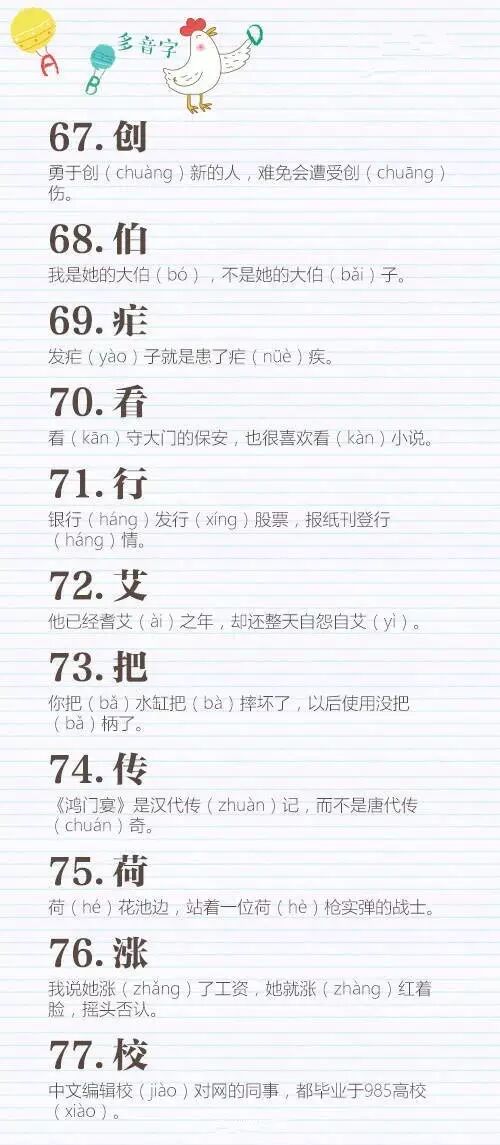 多音字
A
B
D
67. 创
勇于创（chuàng）新的人，难免会遭受创（chuāng）
伤。
68. 伯
我是她的大伯（bó），不是她的大伯（bǎi）子。
69. 疟
发疟（yào）子就是患了疟（nüè）疾。
70. 看
看（kān）守大门的保安，也很喜欢看（kàn）小说。
71. 行
银行（háng）发行（xíng）股票，报纸刊登行
（háng）情。
72. 艾
他已经耆艾（ài）之年，却还整天自怨自艾（yì）。
73. 把
你把（bǎ）水缸把（bà）摔坏了，以后使用没把
（bǎ）柄了。
74. 传
《鸿门宴》是汉代传（zhuàn）记，而不是唐代传
（chuán）奇。
75. 荷
荷（hé）花池边，站着一位荷（hè）枪实弹的战士。
76. 涨
我说她涨（zhǎng）了工资，她就涨（zhàng）红着
脸，摇头否认。
77. 校
中文编辑校（jiào）对网的同事，都毕业于985高校
（xiào）。